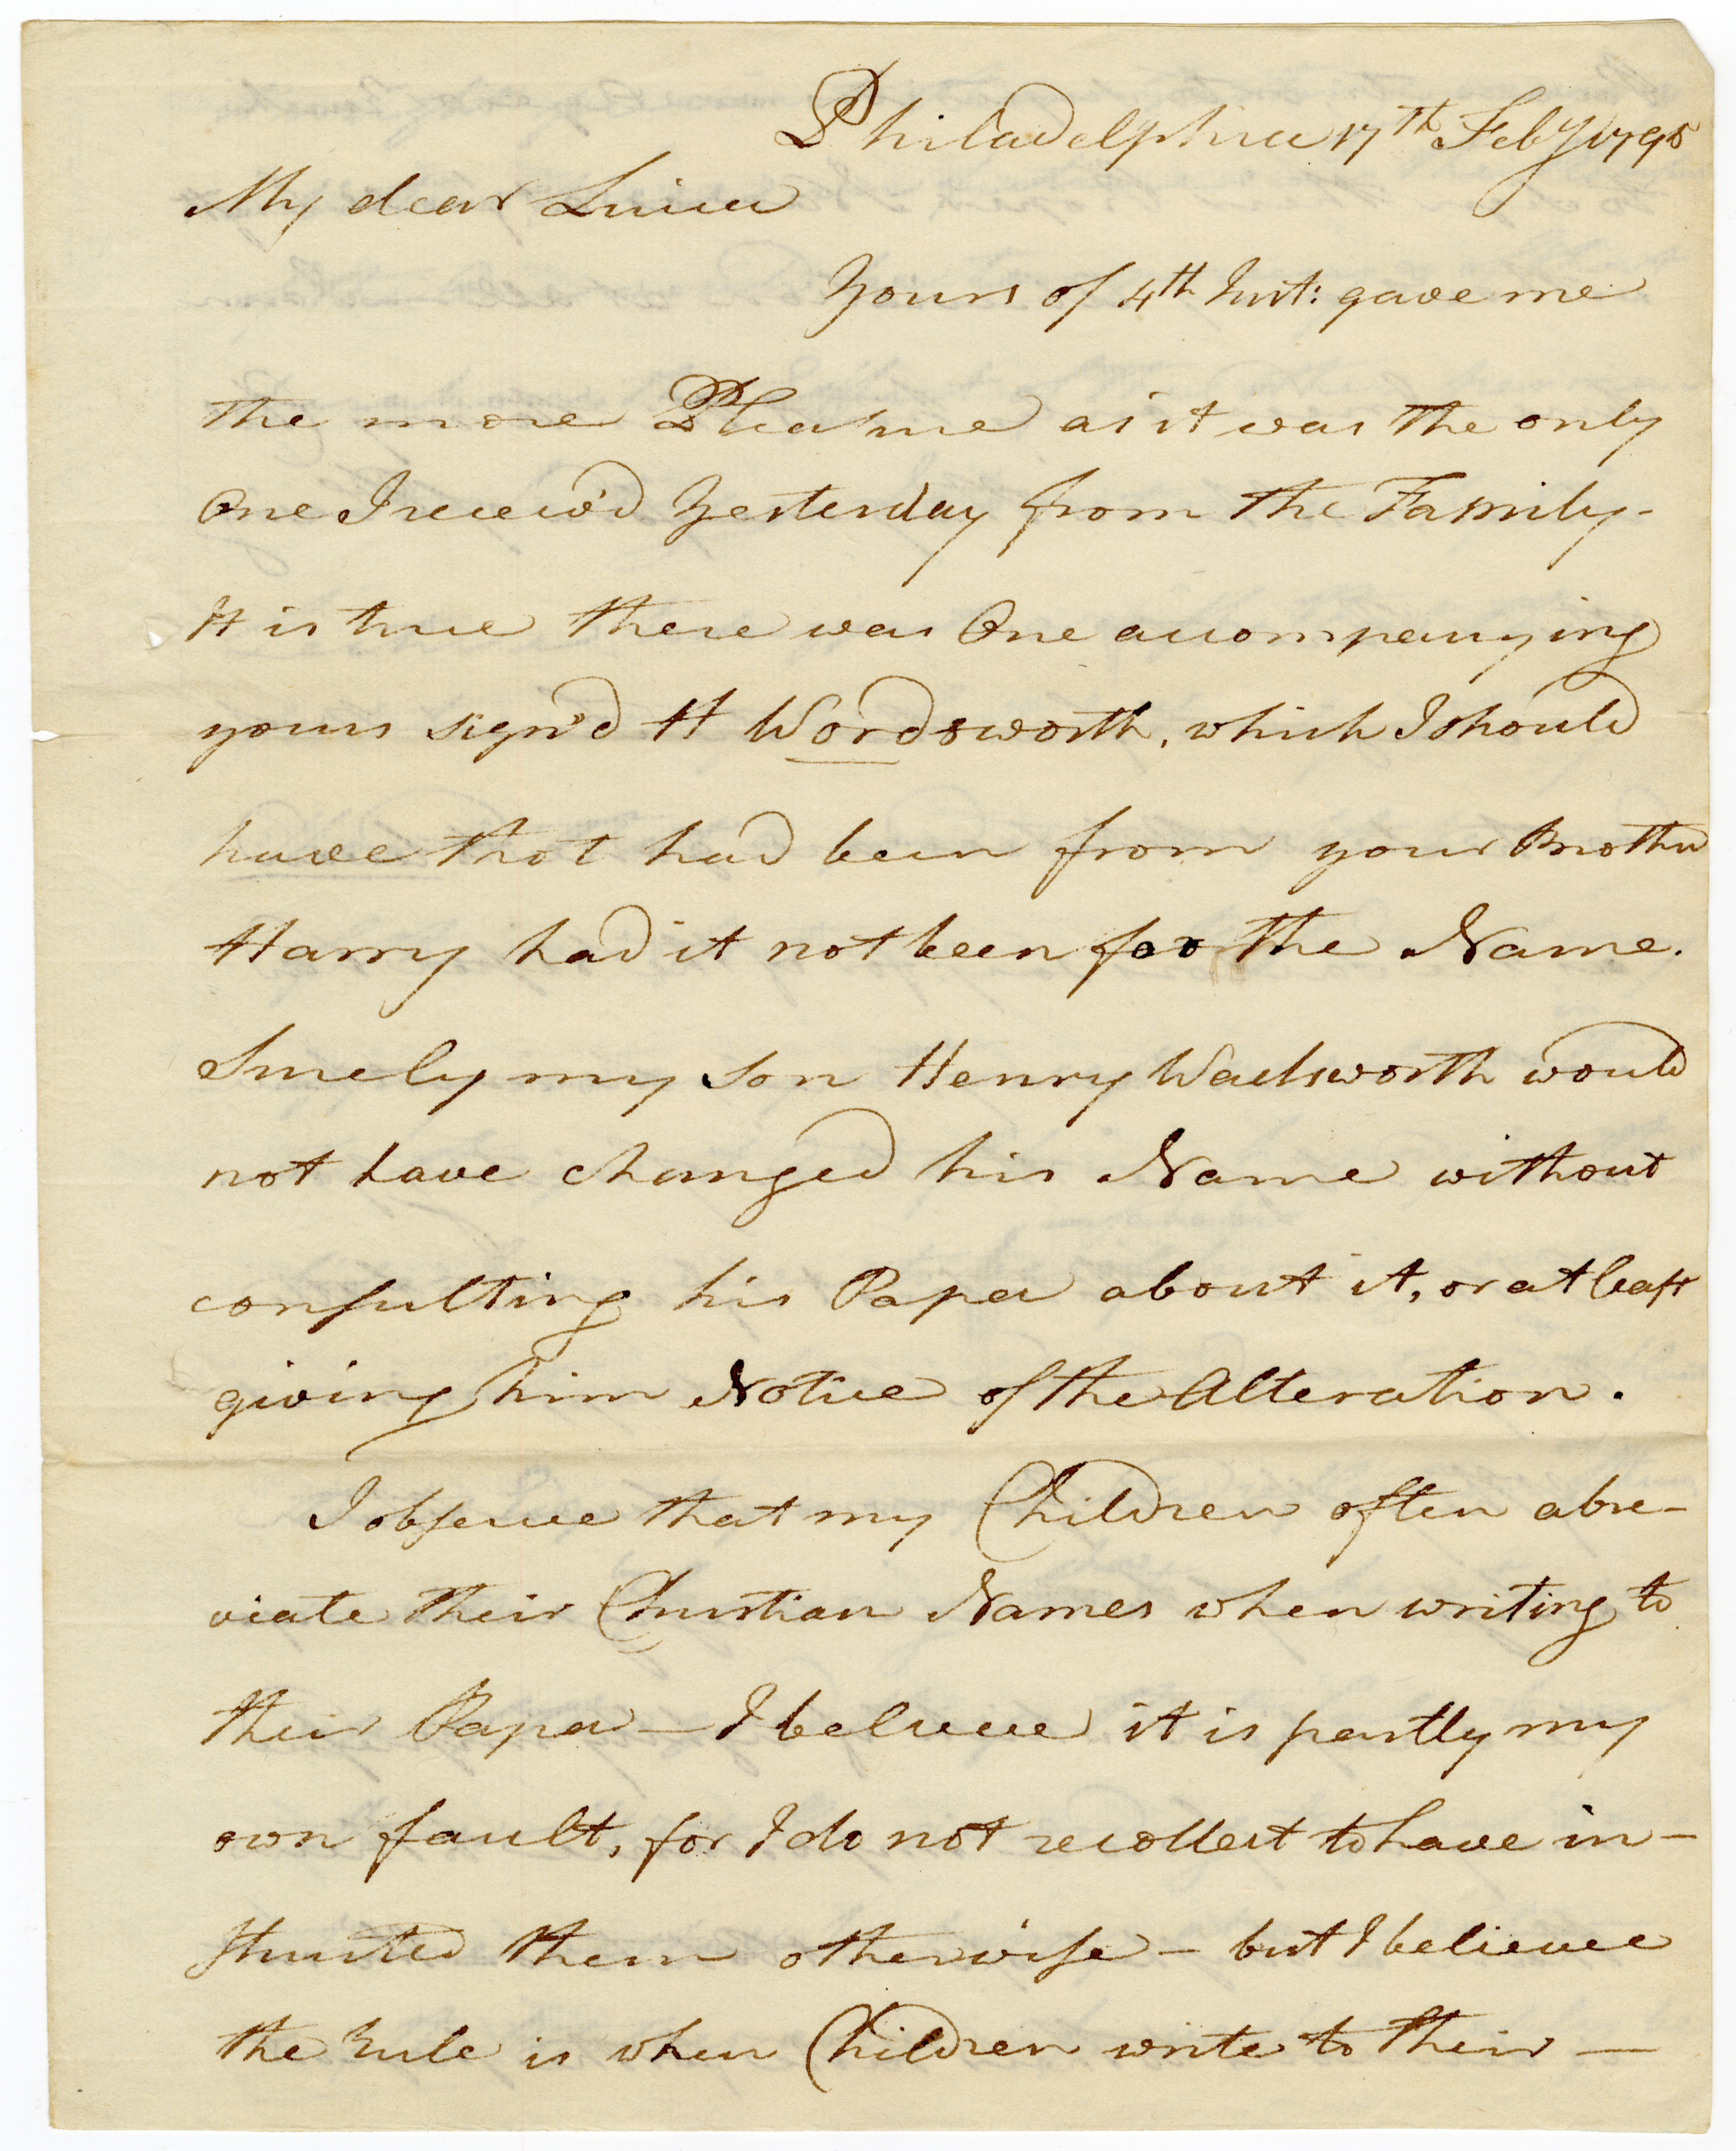 Philadelphia 17th Feby 1795
My dear Luisa
Yours of 4th Inst: gave me
the more Pleasure as it was the only
One I receiv'd Yesterday from the Family-
It is true there was One accompanying
yours sign'd H Wordsworth, which I should
have that had been from your Brother
Harry had it not been for the Name.
Surely my son Henry Wadsworth would
not have changed his Name without
consulting his Papa about it, or at least
giving him Notice of the Alteration.
I observe that my Children often abre-
viate their Christian Names when writing to
their Papa — I believe it is partly my
own fault, for I do not recollect to have in-
structed them otherwise - but I believe
the rule is when Children write to their —